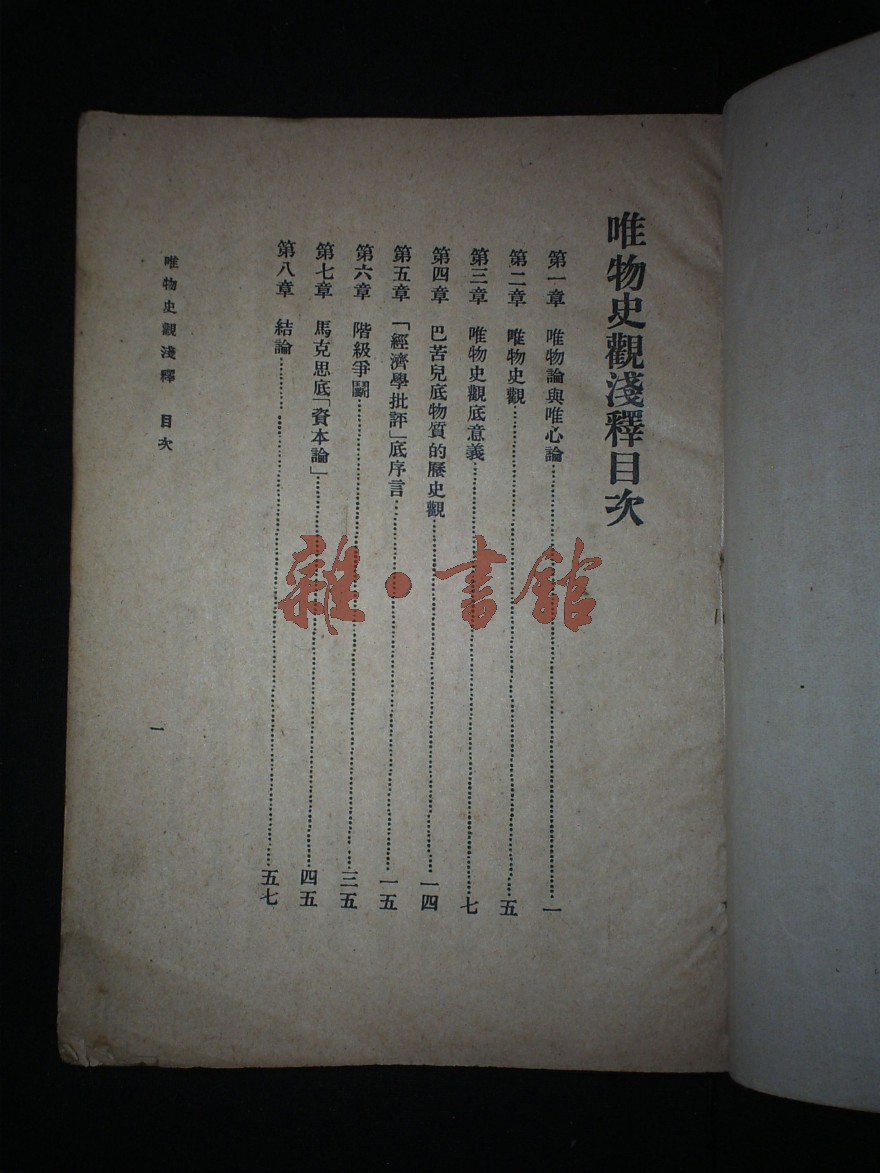 唯物史觀淺釋目次
第一章 唯物論與唯心論……一
第二章 唯物史觀……五
第三章 唯物史觀底意義……七
第四章 巴苦兒底物質的歷史觀……一四
第五章 「經濟學批評」底序言……一五
第六章 階級爭鬭……三五
第七章 馬克思底「資本論」……四五
第八章 結論……五七
唯物史觀淺釋 目次 一
雜·書館